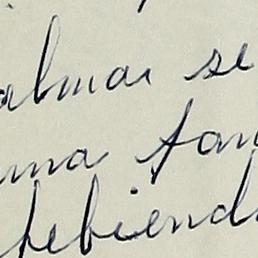 almas se
una tan
bebiend